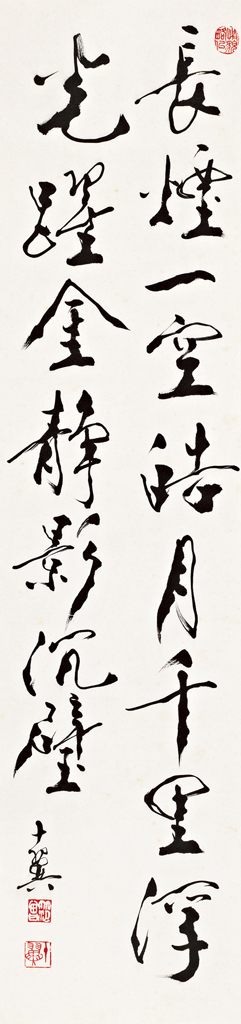 長煙一空皓月千里浮
光躍金靜影沉璧
十翼